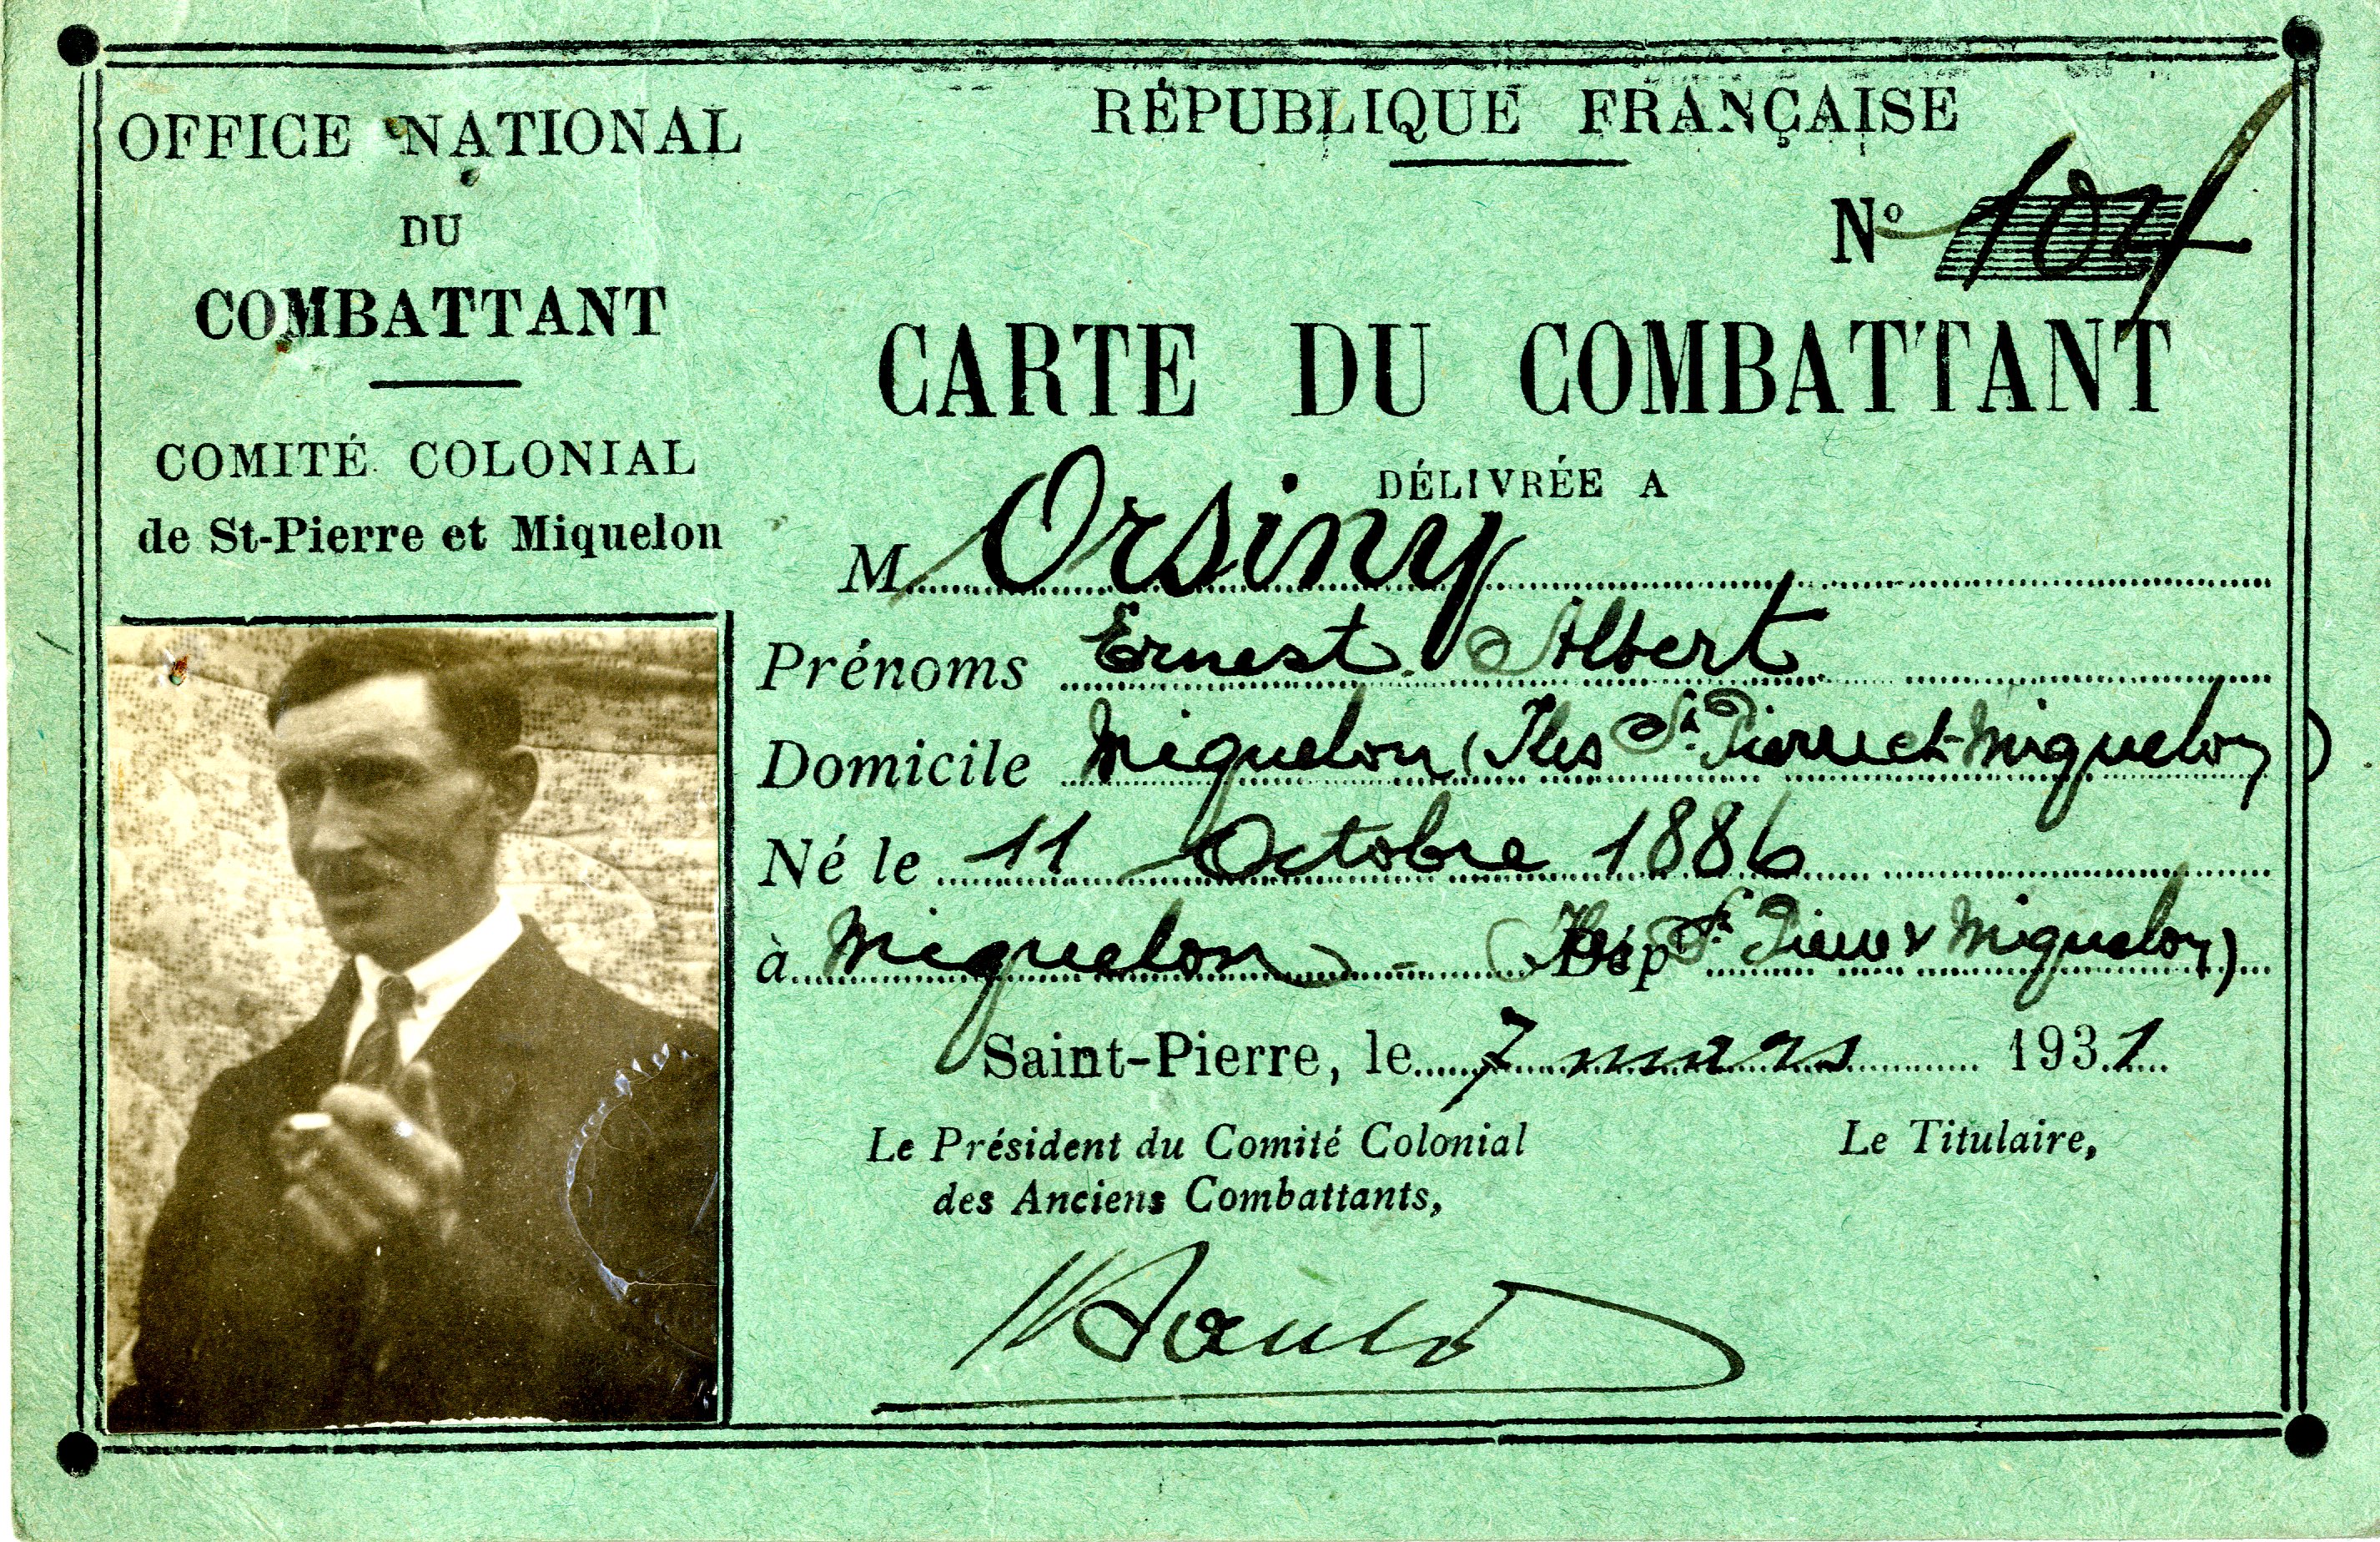 OFFICE NATIONAL
DU
COMBATTANT
COMITÉ COLONIAL
de St-Pierre et Miquelon
RÉPUBLIQUE FRANÇAISE
Nº 104
CARTE DU COMBATTANT
DÉLIVRÉE A
M Orsiny
Prénoms Ernest Albert
Domicile Miquelon (Iles St. Pierre et Miquelon)
Né le 11 Octobre 1886
à Miquelon - (Iles Dép St Pierre & Miquelon)
Saint-Pierre, le 7 mars 1931
Le Président du Comité Colonial
des Anciens Combattants,
Le Titulaire,